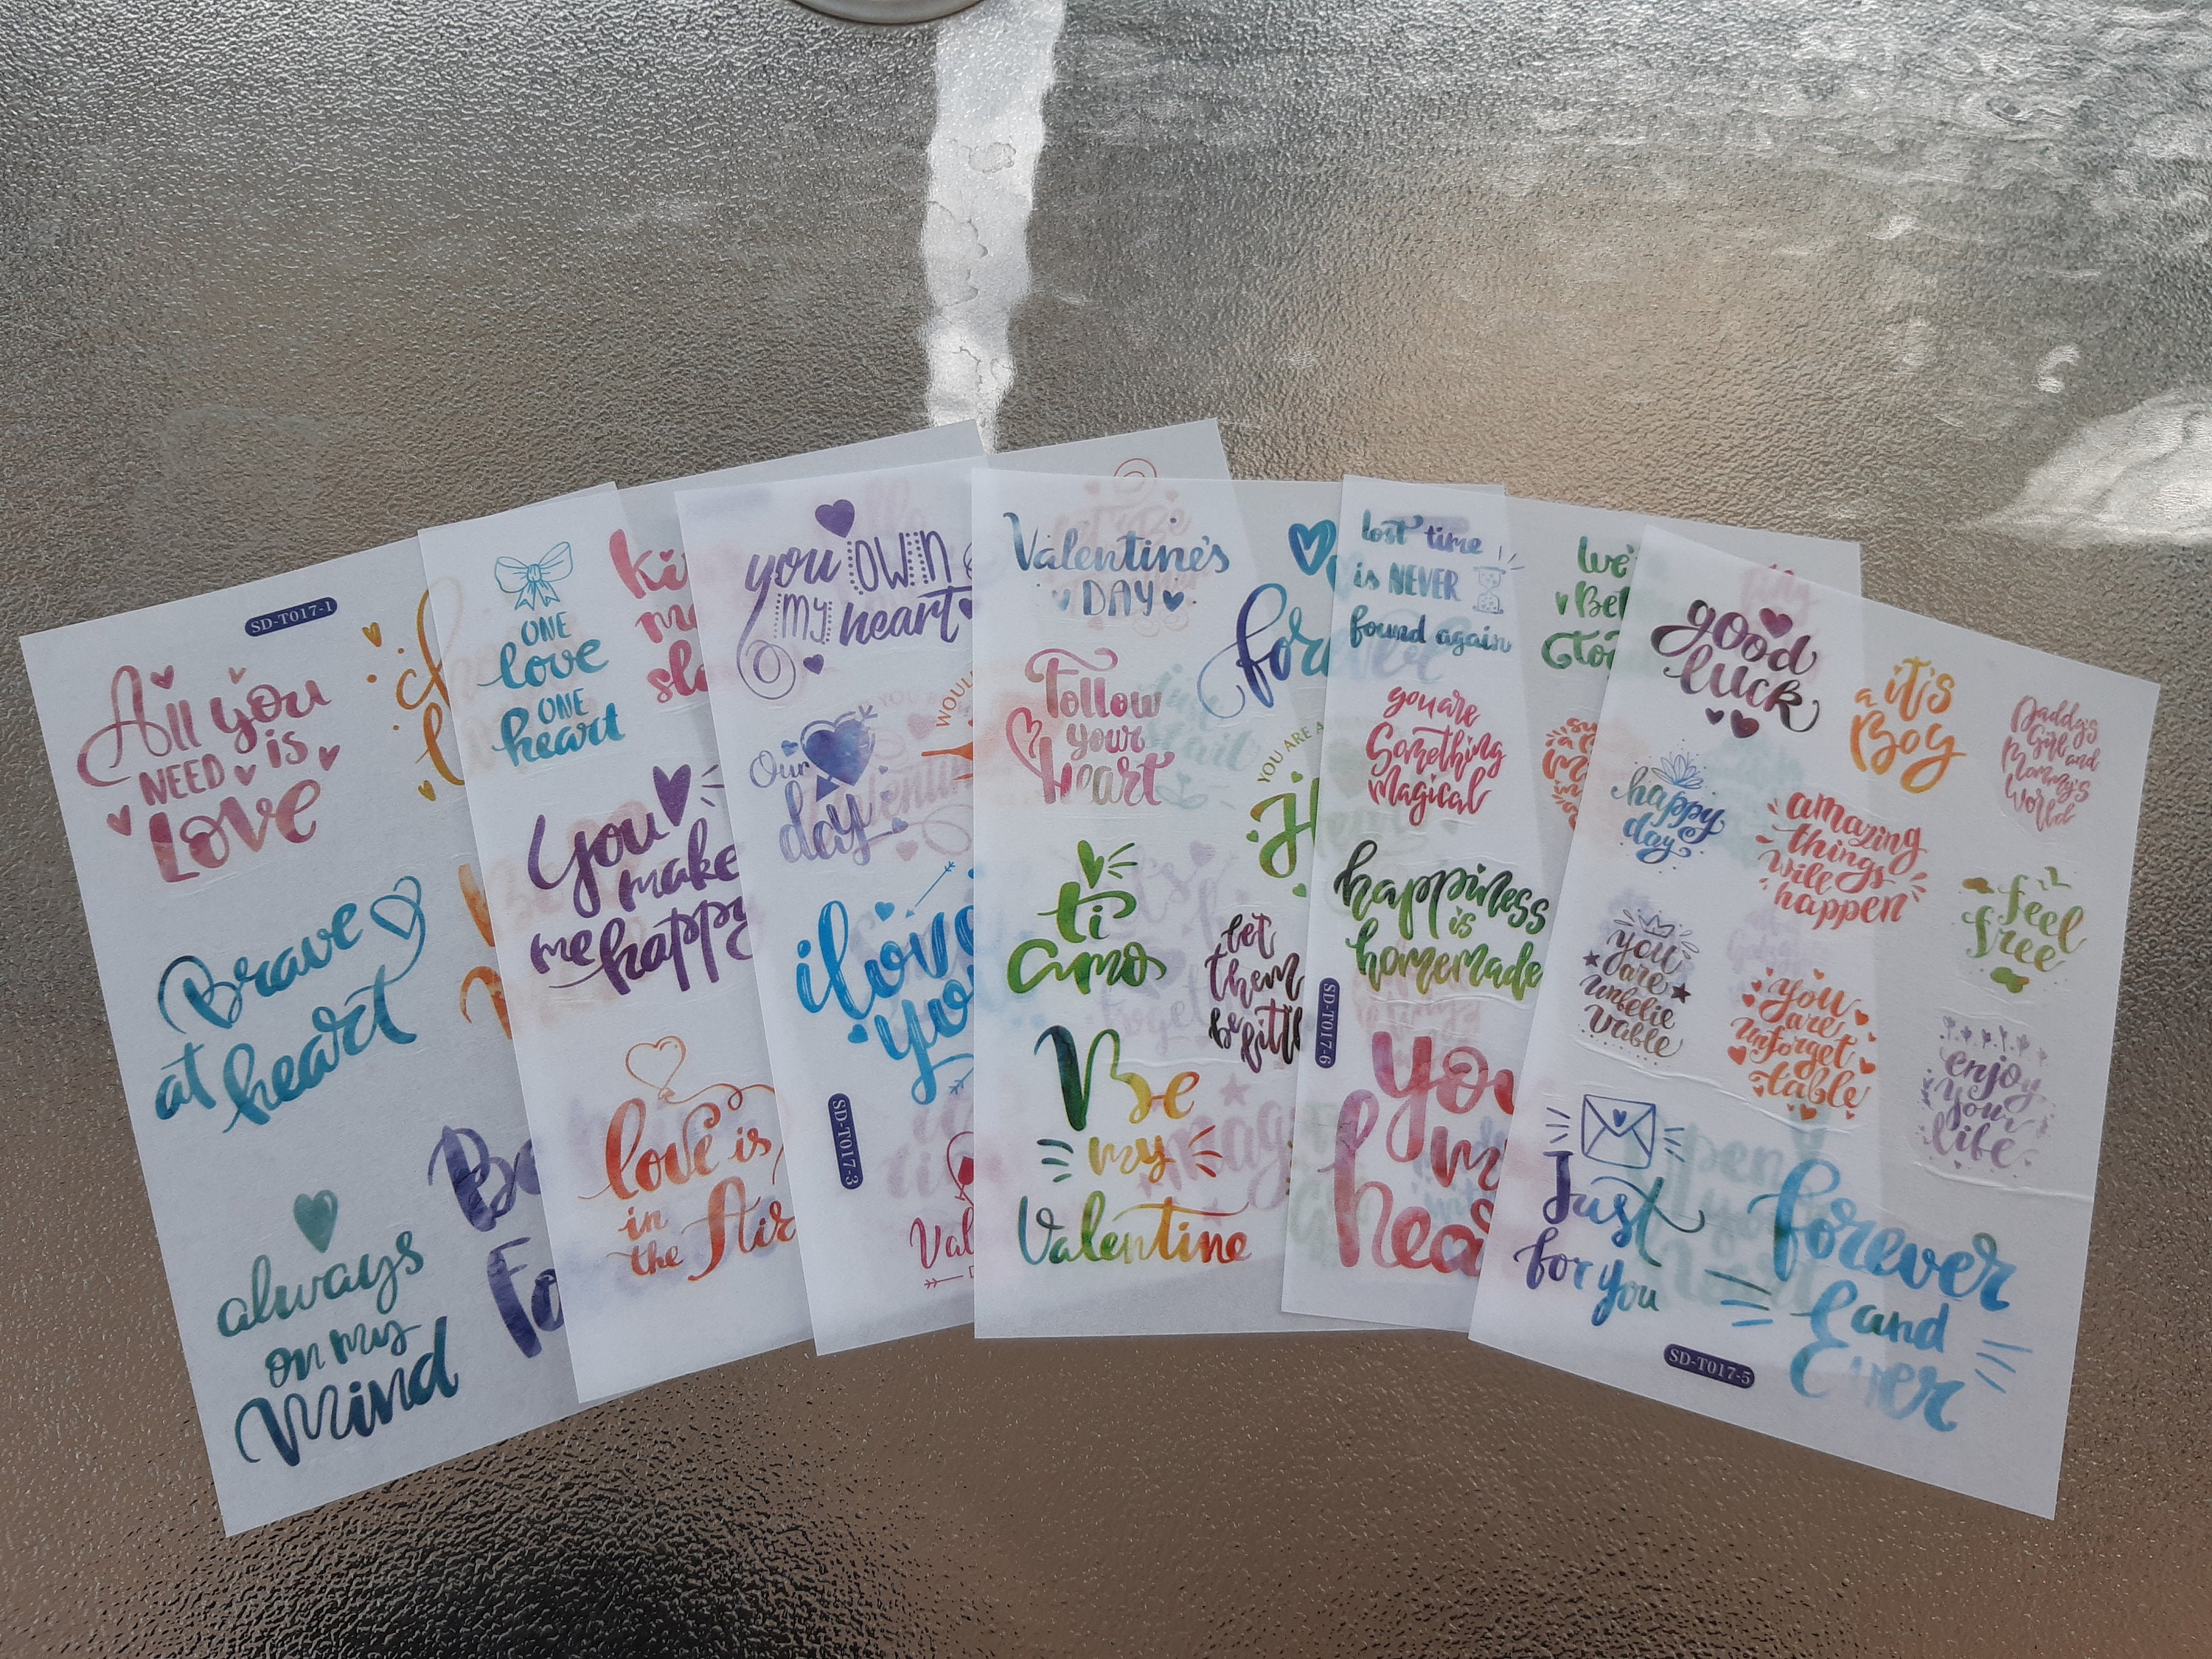 SD-T017-1
All you
NEED is
Love
Brave
at heart
always
on my
Mind
Be
Fo
ONE
love
ONE
heart
ki
me
slo
You
make
me happy
love is
in
the Air
you OWN
MY heart
Our
day
WOUL
i love
you
SD-T017-3
Val
Valentine's
DAY
Follow
your
Heart
ti
amo
Be
my
Valentine
YOU ARE A
let
them
be little
lost time
is NEVER
found again
you are
Something
Magical
happiness
is
homemade
SD-T017-6
you
m
hea
We'
Bet
Tog
good
luck
it's
a
Boy
Daddy's
Girl and
Mommy's
World
happy
day
amazing
things
will
happen
feel
free
you
are
unbelie
vable
you
are
unforget
table
enjoy
your
life
Just
for you
forever
and
Ever
SD-T017-5